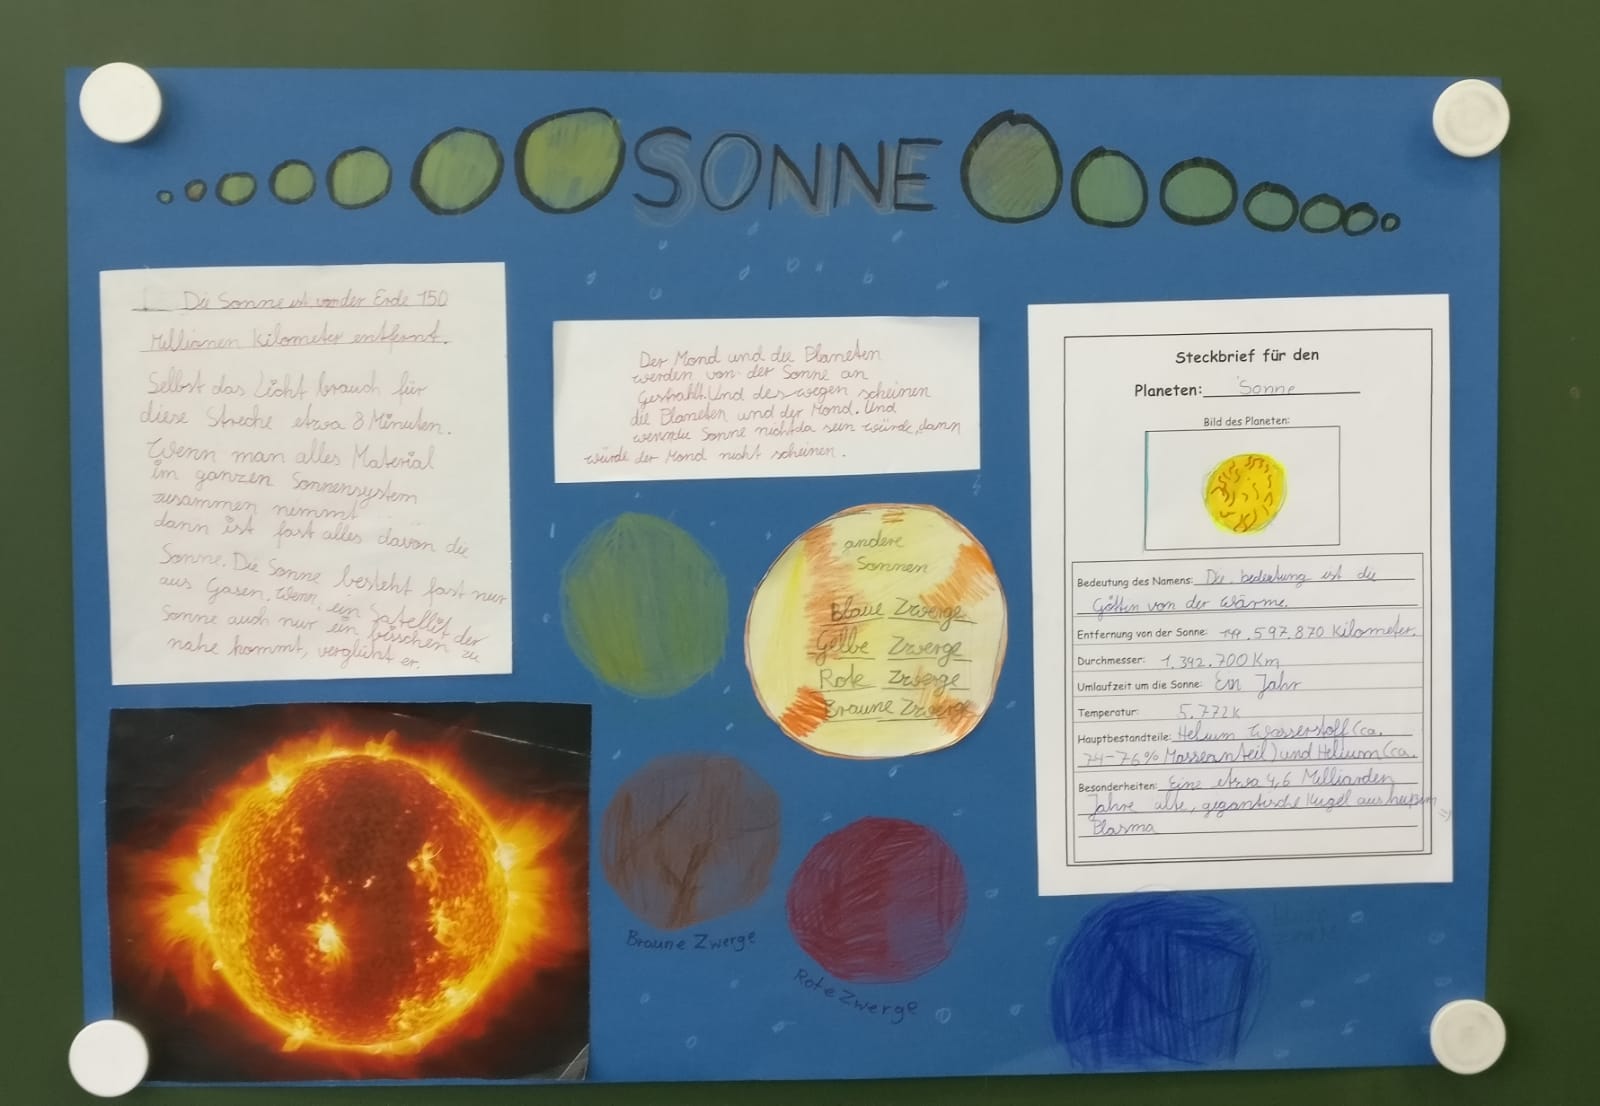 SONNE
Die Sonne ist von der Erde 150
Millionen Kilometer entfernt.
Selbst das Licht brauch für
diese Streche etwa 8 Minuten.
Wenn man alles Material
im ganzen Sonnensystem
zusammen nimmt
dann ist fast alles davon die
Sonne. Die Sonne besteht fast nur
aus Gasen. Wenn ein Satellit der
Sonne auch nur ein bisschen zu
nahe kommt, verglüht er.
Der Mond und die Planeten
werden von der Sonne an
Gestrahlt. Und deswegen scheinen
die Planeten und der Mond. Und
wenn die Sonne nicht da sein würde, dann
würde der Mond nicht scheinen.
andere
Sonnen
Blaue Zwerge
Gelbe Zwerge
Rote Zwerge
Braune Zwerge
Braune Zwerge
Rote Zwerge
Steckbrief für den
Planeten: Sonne
Bild des Planeten:
Bedeutung des Namens: Die bedeutung ist die
Göttin von der Wärme.
Entfernung von der Sonne: .597.870 Kilometer.
Durchmesser: 1.392.700 Km
Umlaufzeit um die Sonne: Ein Jahr
Temperatur: 5.772K
Hauptbestandteile: Helium Wasserstoff (ca.
74-76% Massenanteil) und Helium (ca.
Besonderheiten: Eine etwa 4,6 Milliarden
Jahre alte, gegantische Kugel aus heißem
Plasma